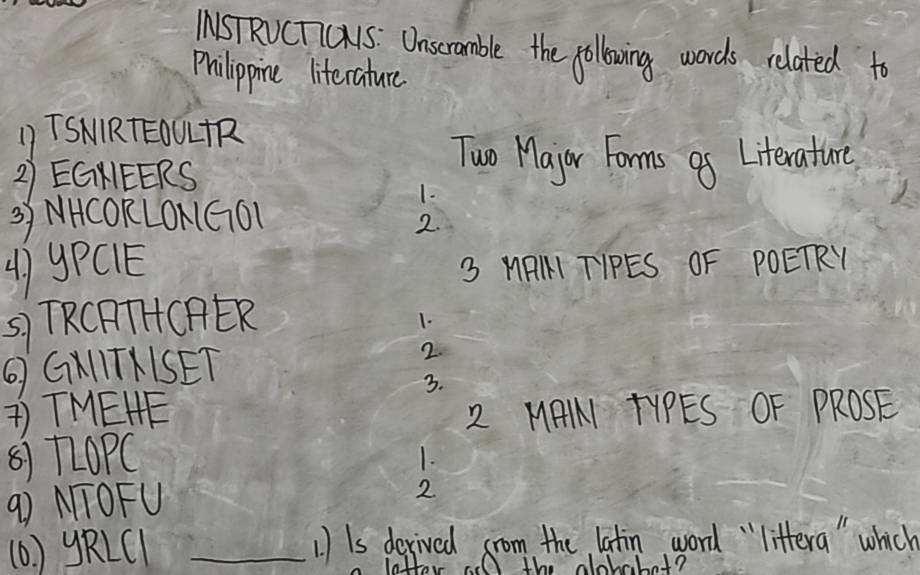 INSTRUCTIONS: Unscramble the following words related to
Philippine literature.
1) TSNIRTEOULTR
2) EGNEERS
3) NHCORLONGOI
4.) YPCIE
5.) TRCATHCAER
6.) GNITNISET
7) TMEHE
8) TLOPC
9) NTOFU
10.) YRLCI
Two Major Forms of Literature
1.
2.
3 MAIN TYPES OF POETRY
1.
2.
3.
2 MAIN TYPES OF PROSE
1.
2
1.) Is derived from the latin word "littera" which
a letter of the alphabet?